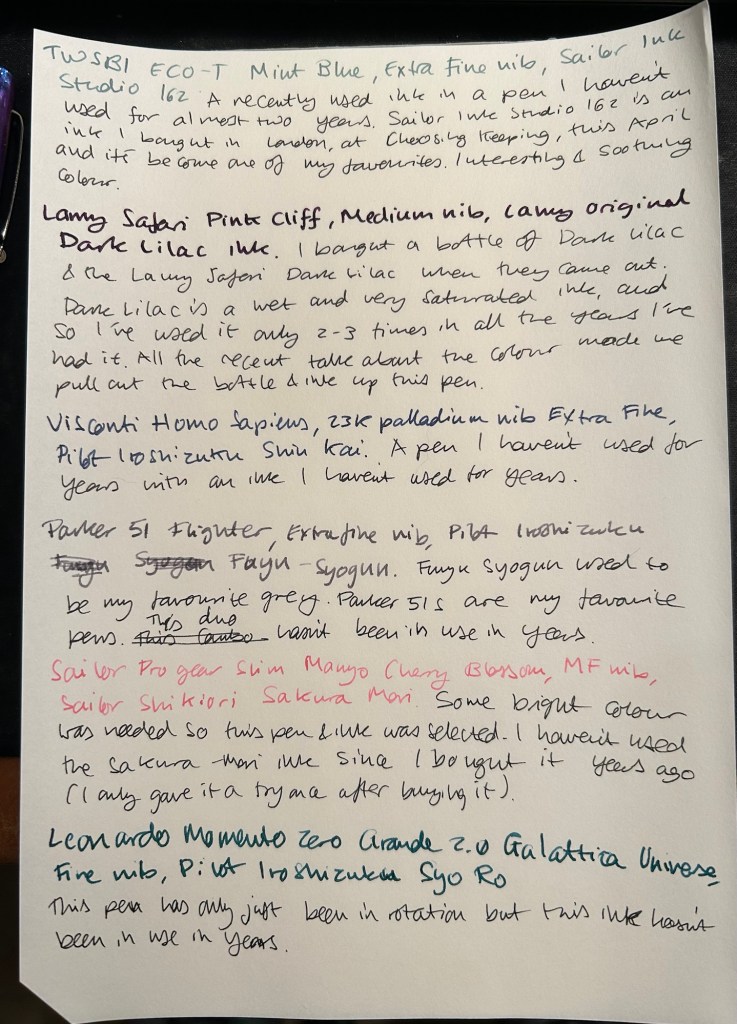 TWSBI ECO-T Mint Blue, Extra Fine nib, Sailor Ink
Studio 162 A recently used ink in a pen I haven't
used for almost two years. Sailor Ink Studio 162 is an
ink I bought in London, at Choosing Keeping, this April
and it's become one of my favourites. Interesting & soothing
colour.
Lamy Safari Pink Cliff, Medium nib, Lamy original
Dark Lilac ink. I bought a bottle of Dark Lilac
& the Lamy Safari Dark Lilac when they came out.
Dark Lilac is a wet and very saturated ink, and
so I've used it only 2-3 times in all the years I've
had it. All the recent talk about the colour made me
pull out the bottle & ink up this pen.
Visconti Homo Sapiens, 23K palladium nib Extra Fine,
Pilot Iroshizuku Shin Kai. A pen I haven't used for
years with an ink I haven't used for years.
Parker 51 Flighter, Extra fine nib, Pilot Iroshizuku
Fuyu-Syogun. Fuyu Syogun used to
be my favourite grey. Parker 51s are my favourite
pens. This duo hasn't been in use in years.
Sailor Pro gear Slim Manyo Cherry Blossom, MF nib,
Sailor Shikiori Sakura Mori. Some bright colour
was needed so this pen & ink was selected. I haven't used
the Sakura-Mori ink since I bought it years ago
(I only gave it a try once after buying it).
Leonardo Momento Zero Grande 2.0 Galattica Universe,
Fine nib, Pilot Iroshizuku Syo Ro
This pen has only just been in rotation but this ink hasn't
been in use in years.